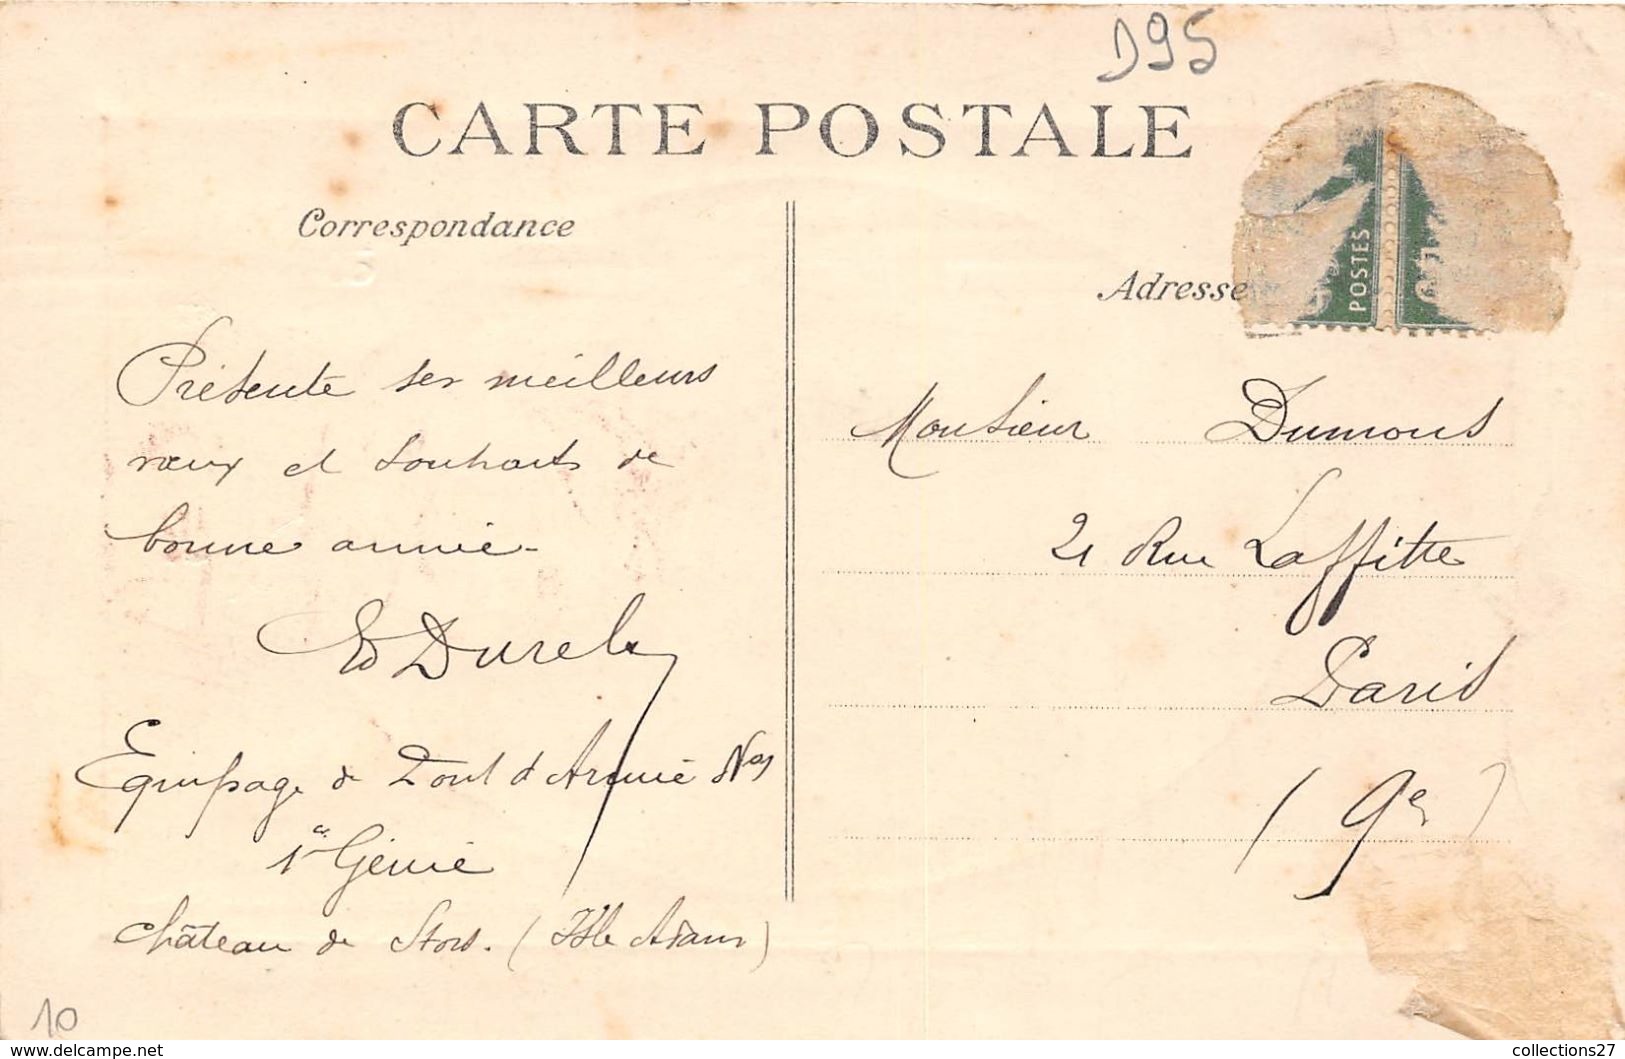 D95
CARTE POSTALE
Correspondance
Adresse
POSTES
Présente ses meilleurs
vœux et souhaits de
bonne année -
Ed Durel
Equipage de Pont d'Armée N°1
1er Génie
Château de Stors. (Isle Adam)
Monsieur Dumont
21 Rue Laffitte
Paris
(9e)
10
delcampe.net
collections27